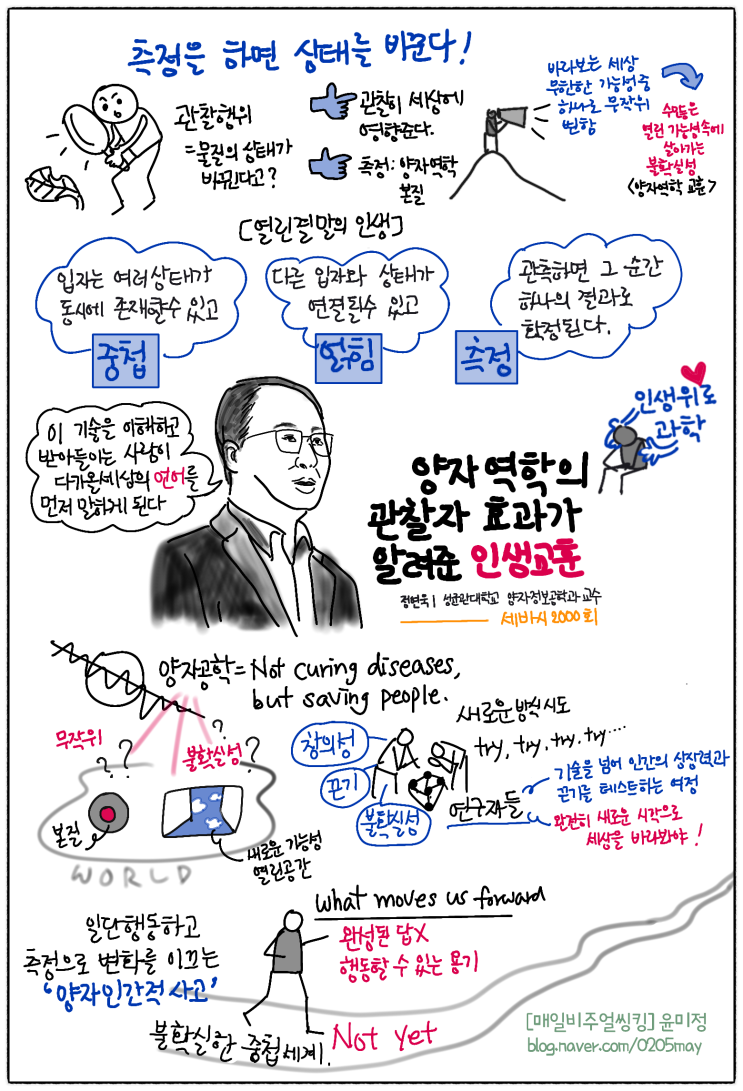 측정을 하면 상태를 바꾼다!
관찰행위
=물질의 상태가
바뀐다고?
관찰이 세상에
영향준다.
측정: 양자역학
본질
바라보는 세상
무한한 가능성중
하나로 무작위
변함
수많은
열린 가능성속에
살아가는
불확실성
<양자역학 교훈>
[열린결말의 인생]
입자는 여러상태가
동시에 존재할수 있고
중첩
다른 입자와 상태가
연결될수 있고
얽힘
관측하면 그 순간
하나의 결과로
확정된다.
측정
이 기술을 이해하고
받아들이는 사람이
다가올세상의 언어를
먼저 말하게 된다
인생위로
과학
양자역학의
관찰자 효과가
알려준 인생교훈
정연욱 | 성균관대학교 양자정보공학과 교수
세바시 2000회
양자공학=Not curing diseases,
but saving people.
무작위
불확실성
? ? ? ?
본질
새로운 가능성
열린공간
WORLD
새로운 방식 시도
try, try, try, try....
창의성
끈기
불확실성
연구자들
기술을 넘어 인간의 상상력과
끈기를 테스트하는 여정
완전히 새로운 시각으로
세상을 바라봐야!
what moves us forward
일단행동하고
측정으로 변화를 이끄는
'양자인간적 사고'
완성된 답X
행동할 수 있는 용기
불확실한 중첩세계.
Not yet
[매일비주얼씽킹] 윤미정
blog.naver.com/0205may